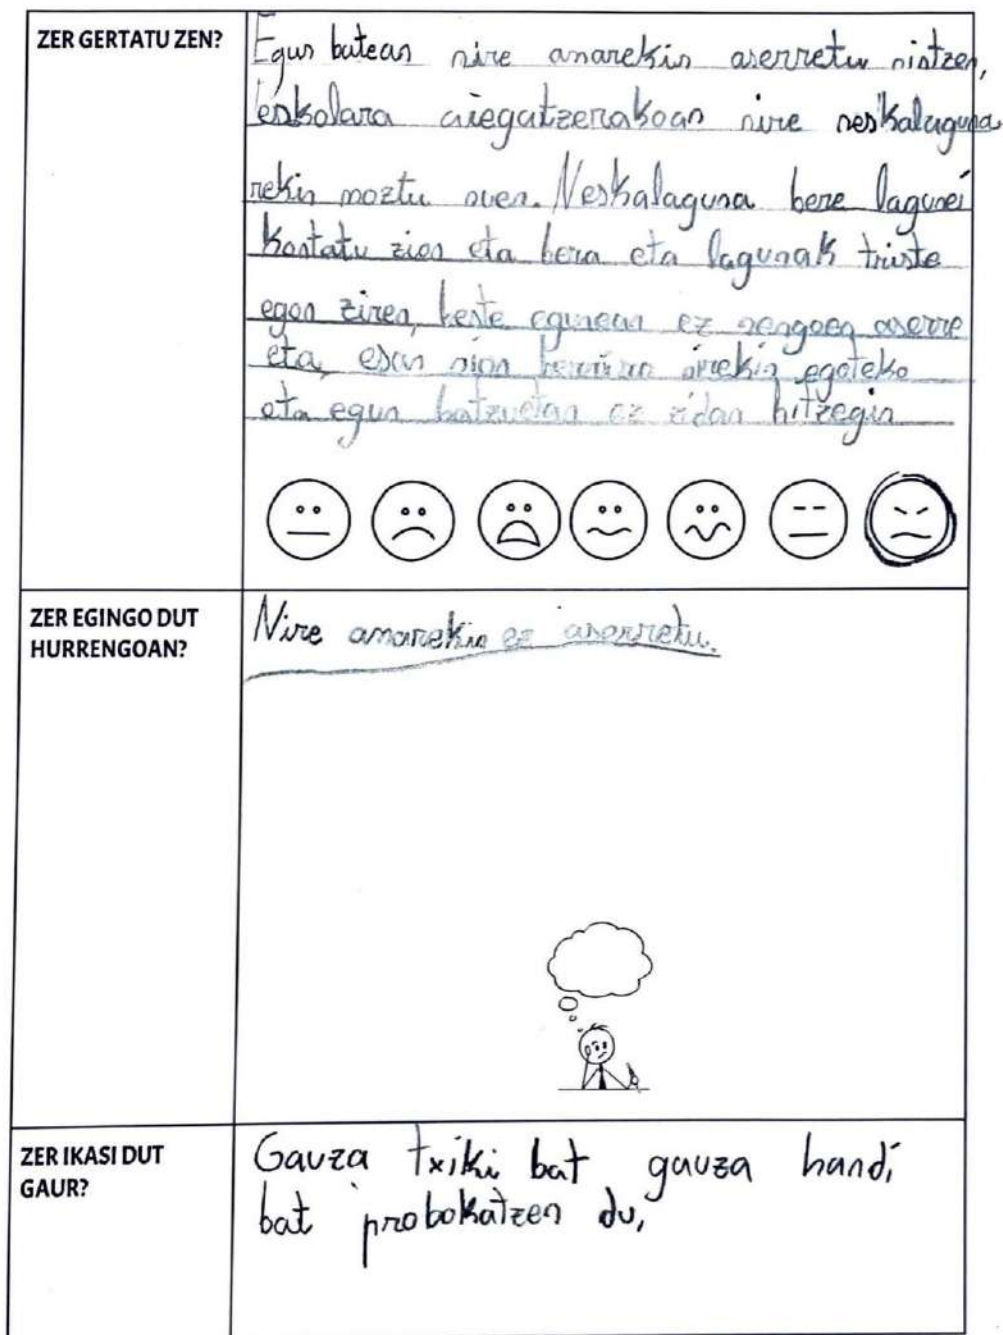 ZER GERTATU ZEN?
Egun batean nire amarekin aserretu nintzen,
eskolara ailegatzerakoan nire neskalaguna
rekin moztu nuen. Neskalaguna bere lagunei
kontatu zion eta bera eta lagunak triste
egon ziren, beste egunean ez nengoen aserre
eta, esan nion berriro nirekin egoteko
eta egun batzuetan ez zidan hitzegin
ZER EGINGO DUT
HURRENGOAN?
Nire amarekin ez aserretu.
ZER IKASI DUT
GAUR?
Gauza txiki bat gauza handi
bat probokatzen du,